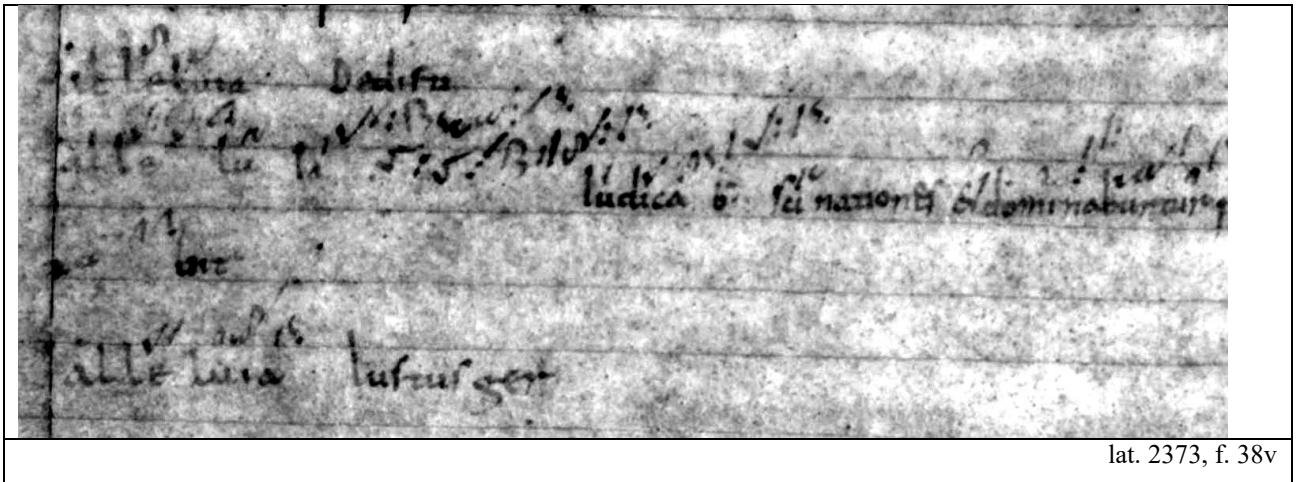 alleluia Dedistu
alle lu ia
Iudica b̄t sc̄i nationes & dominabuntur
alleluia Iustus ger
lat. 2373, f. 38v